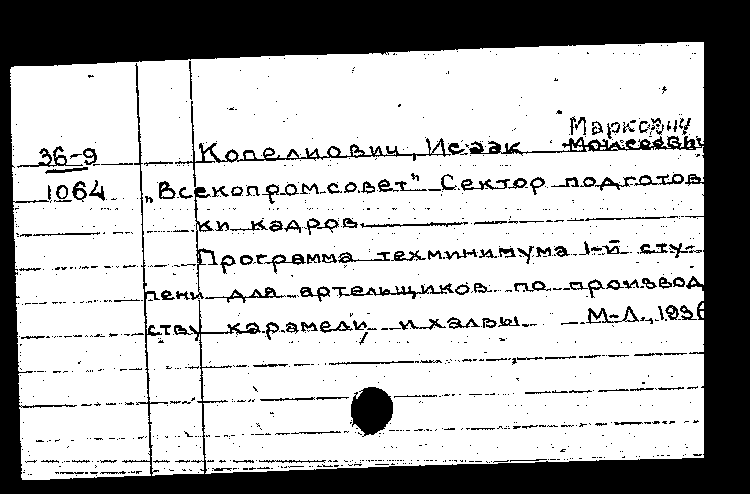 Маркович
36-9 Копелиович, Исаак Моисеевич
1064 „Всекопромсовет" Сектор подготов
ки кадров.
Программа техминимума 1-й сту-
пени для артельщиков по производ
ству карамели и халвы. М-Л., 1936